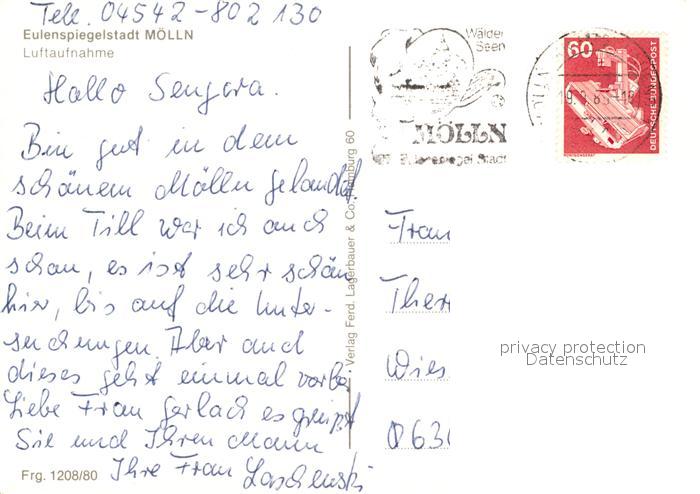 Tele. 04542-802 130
Eulenspiegelstadt MÖLLN
Luftaufnahme
Hallo Sengora.
Bin gut in dem
schönem Mölln gelandet.
Beim Till war ich auch
schon, es ist sehr schön
hier, bis auf die Unter-
suchungen. Aber auch
dieses geht einmal vorbei
Liebe Frau Gerlach es grüsst
Sie und Ihren Mann
Ihre Frau
Frg. 1208/80
Verlag Ferd. Lagerbauer & Co. Hamburg 60
Wälder
Seen
MÖLLN
Eulenspiegel-Stadt
60
DEUTSCHE BUNDESPOST
Frau
Ther
Wies
privacy protection
Datenschutz